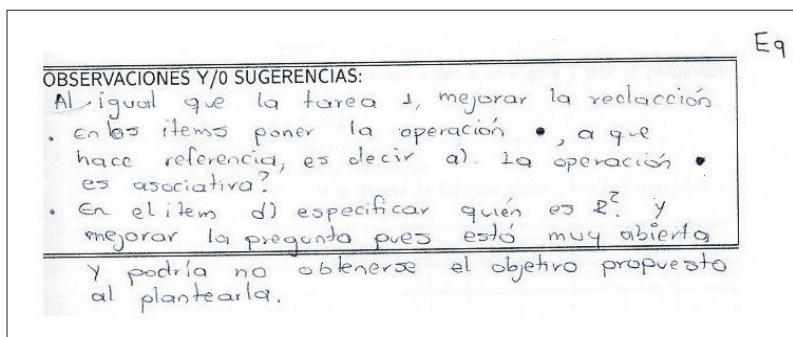 Eq
OBSERVACIONES Y/0 SUGERENCIAS:
Al igual que la tarea 1, mejorar la redacción
. En los items poner la operación •, a que
hace referencia, es decir a). La operación •
es asociativa?
. En el item d) especificar quién es e? y
mejorar la pregunta pues está muy abierta
y podría no obtenerse el objetivo propuesto
al plantearla.